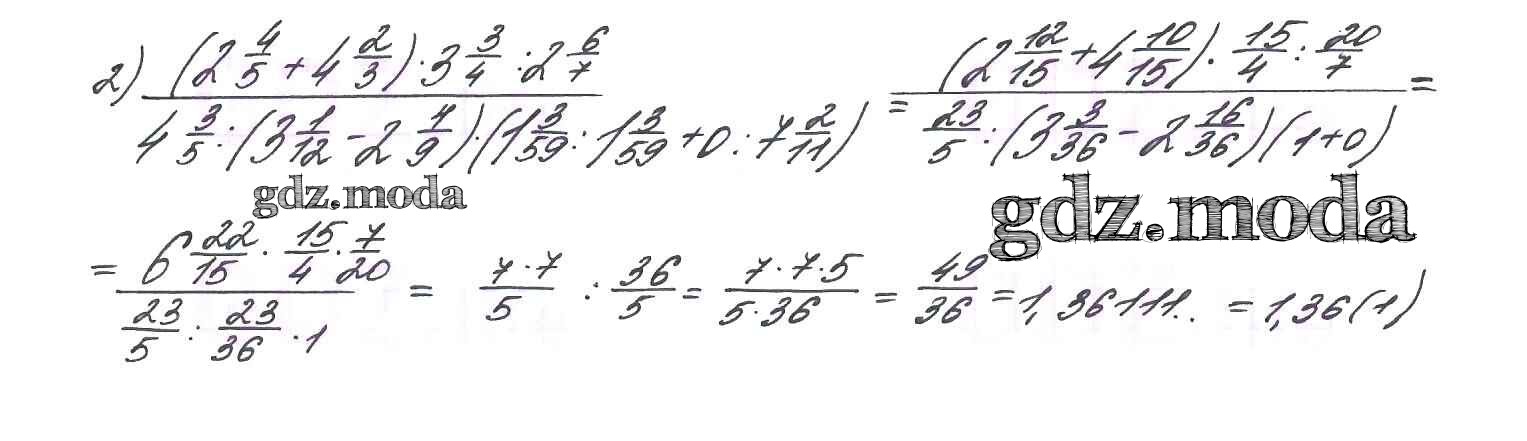 2) ((2 4/5 + 4 2/3) · 3 3/4 : 2 6/7) / (4 3/5 : (3 1/12 - 2 4/9) · (1 3/59 : 1 3/59 + 0 : 7 2/11)) = ((2 12/15 + 4 10/15) · 15/4 : 20/7) / (23/5 : (3 3/36 - 2 16/36)(1+0)) =
gdz.moda gdz.moda
= (6 22/15 · 15/4 · 7/20) / (23/5 : 23/36 · 1) = (7·7)/5 : 36/5 = (7·7·5)/(5·36) = 49/36 = 1,36111.. = 1,36(1)